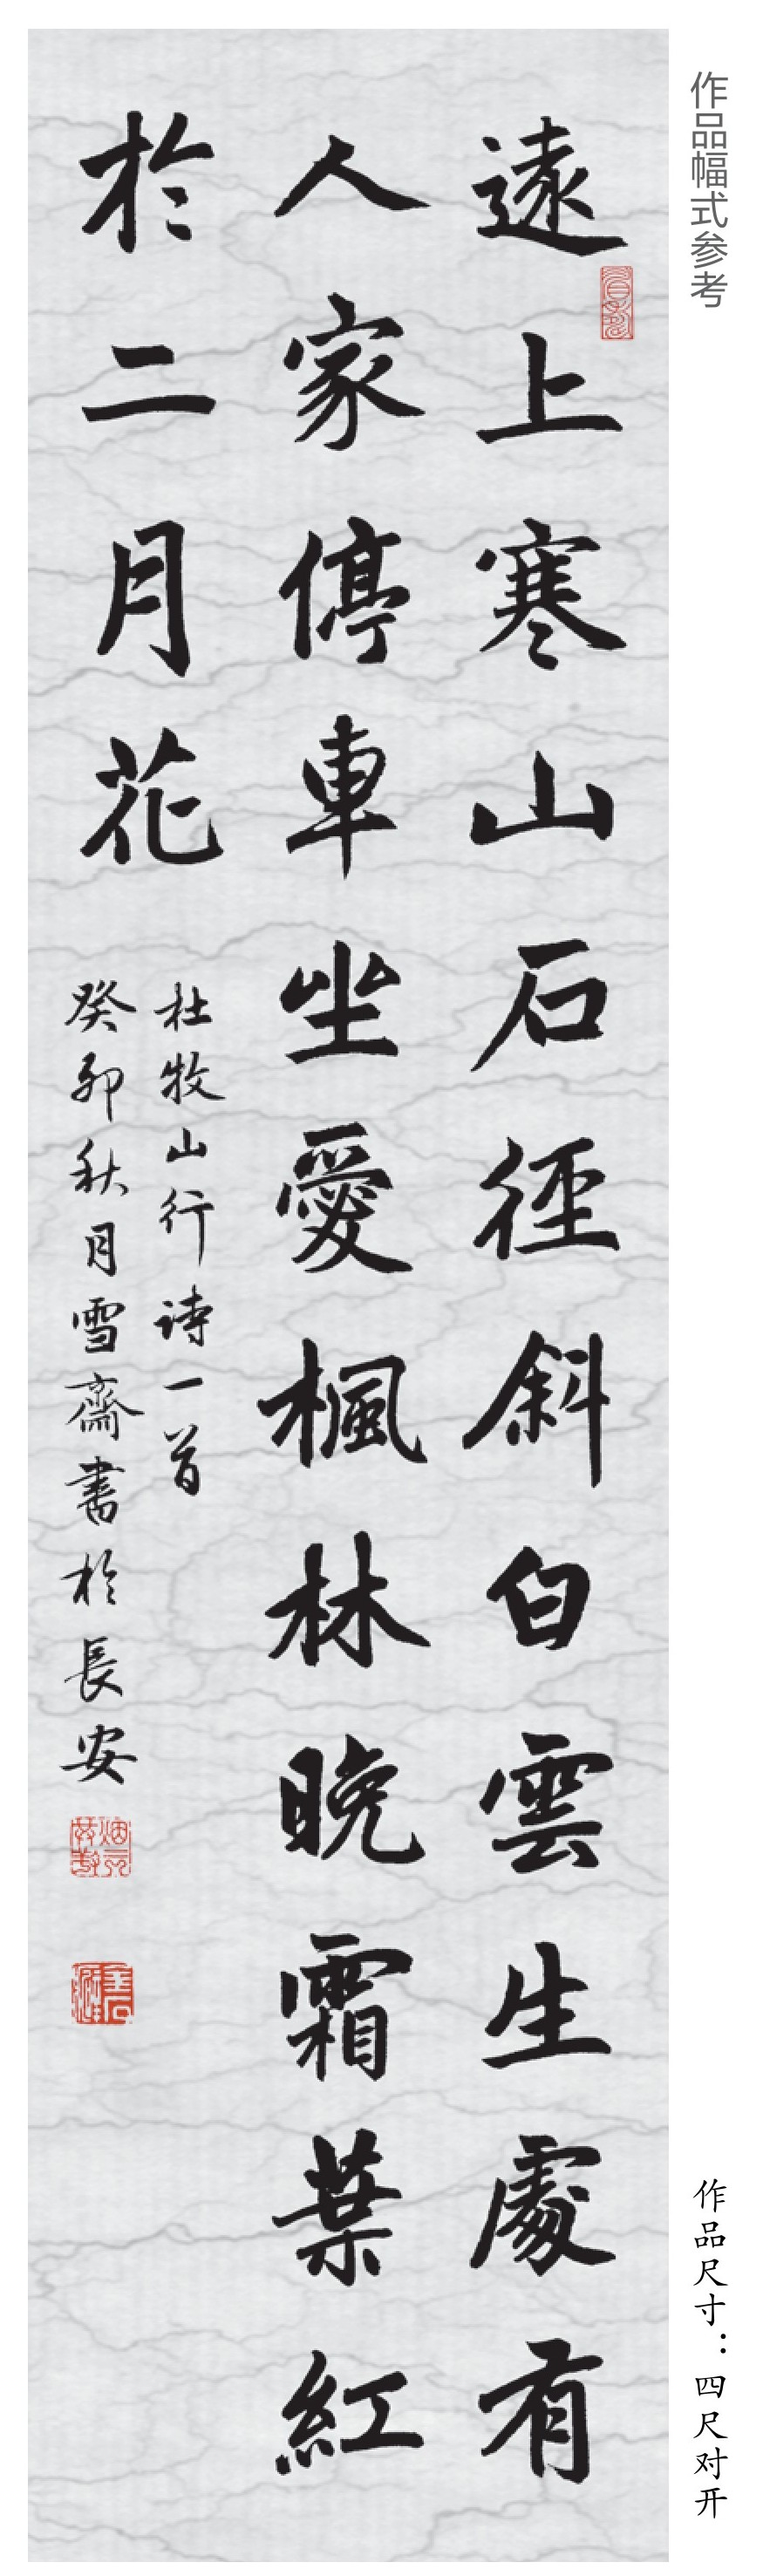 作品幅式参考
遠上寒山石徑斜白雲生處有
人家停車坐愛楓林晚霜葉紅
於二月花
杜牧山行诗一首
癸卯秋月雪齋書於長安
作品尺寸：四尺对开